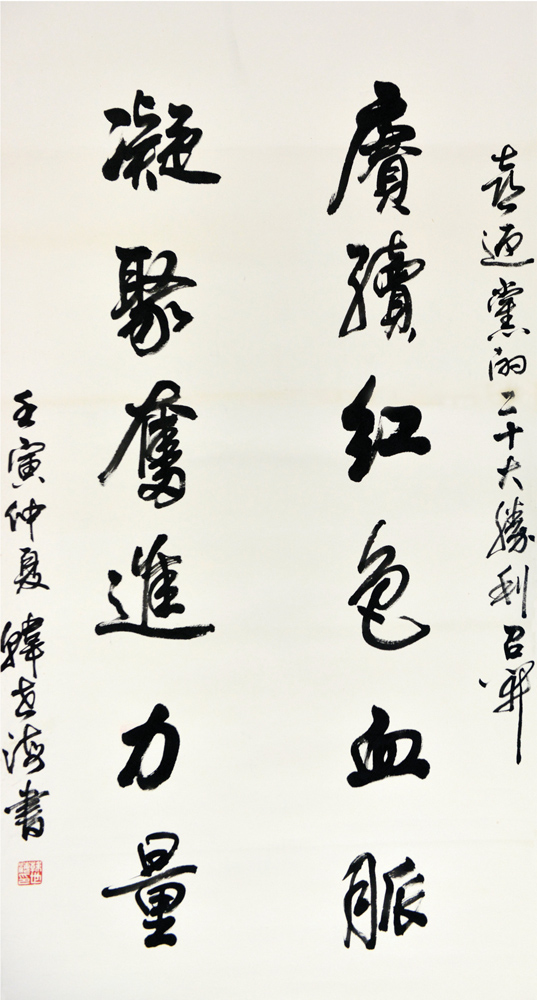 喜迎黨的二十大勝利召開
賡續紅色血脈
凝聚奮進力量
壬寅仲夏 韓世海書